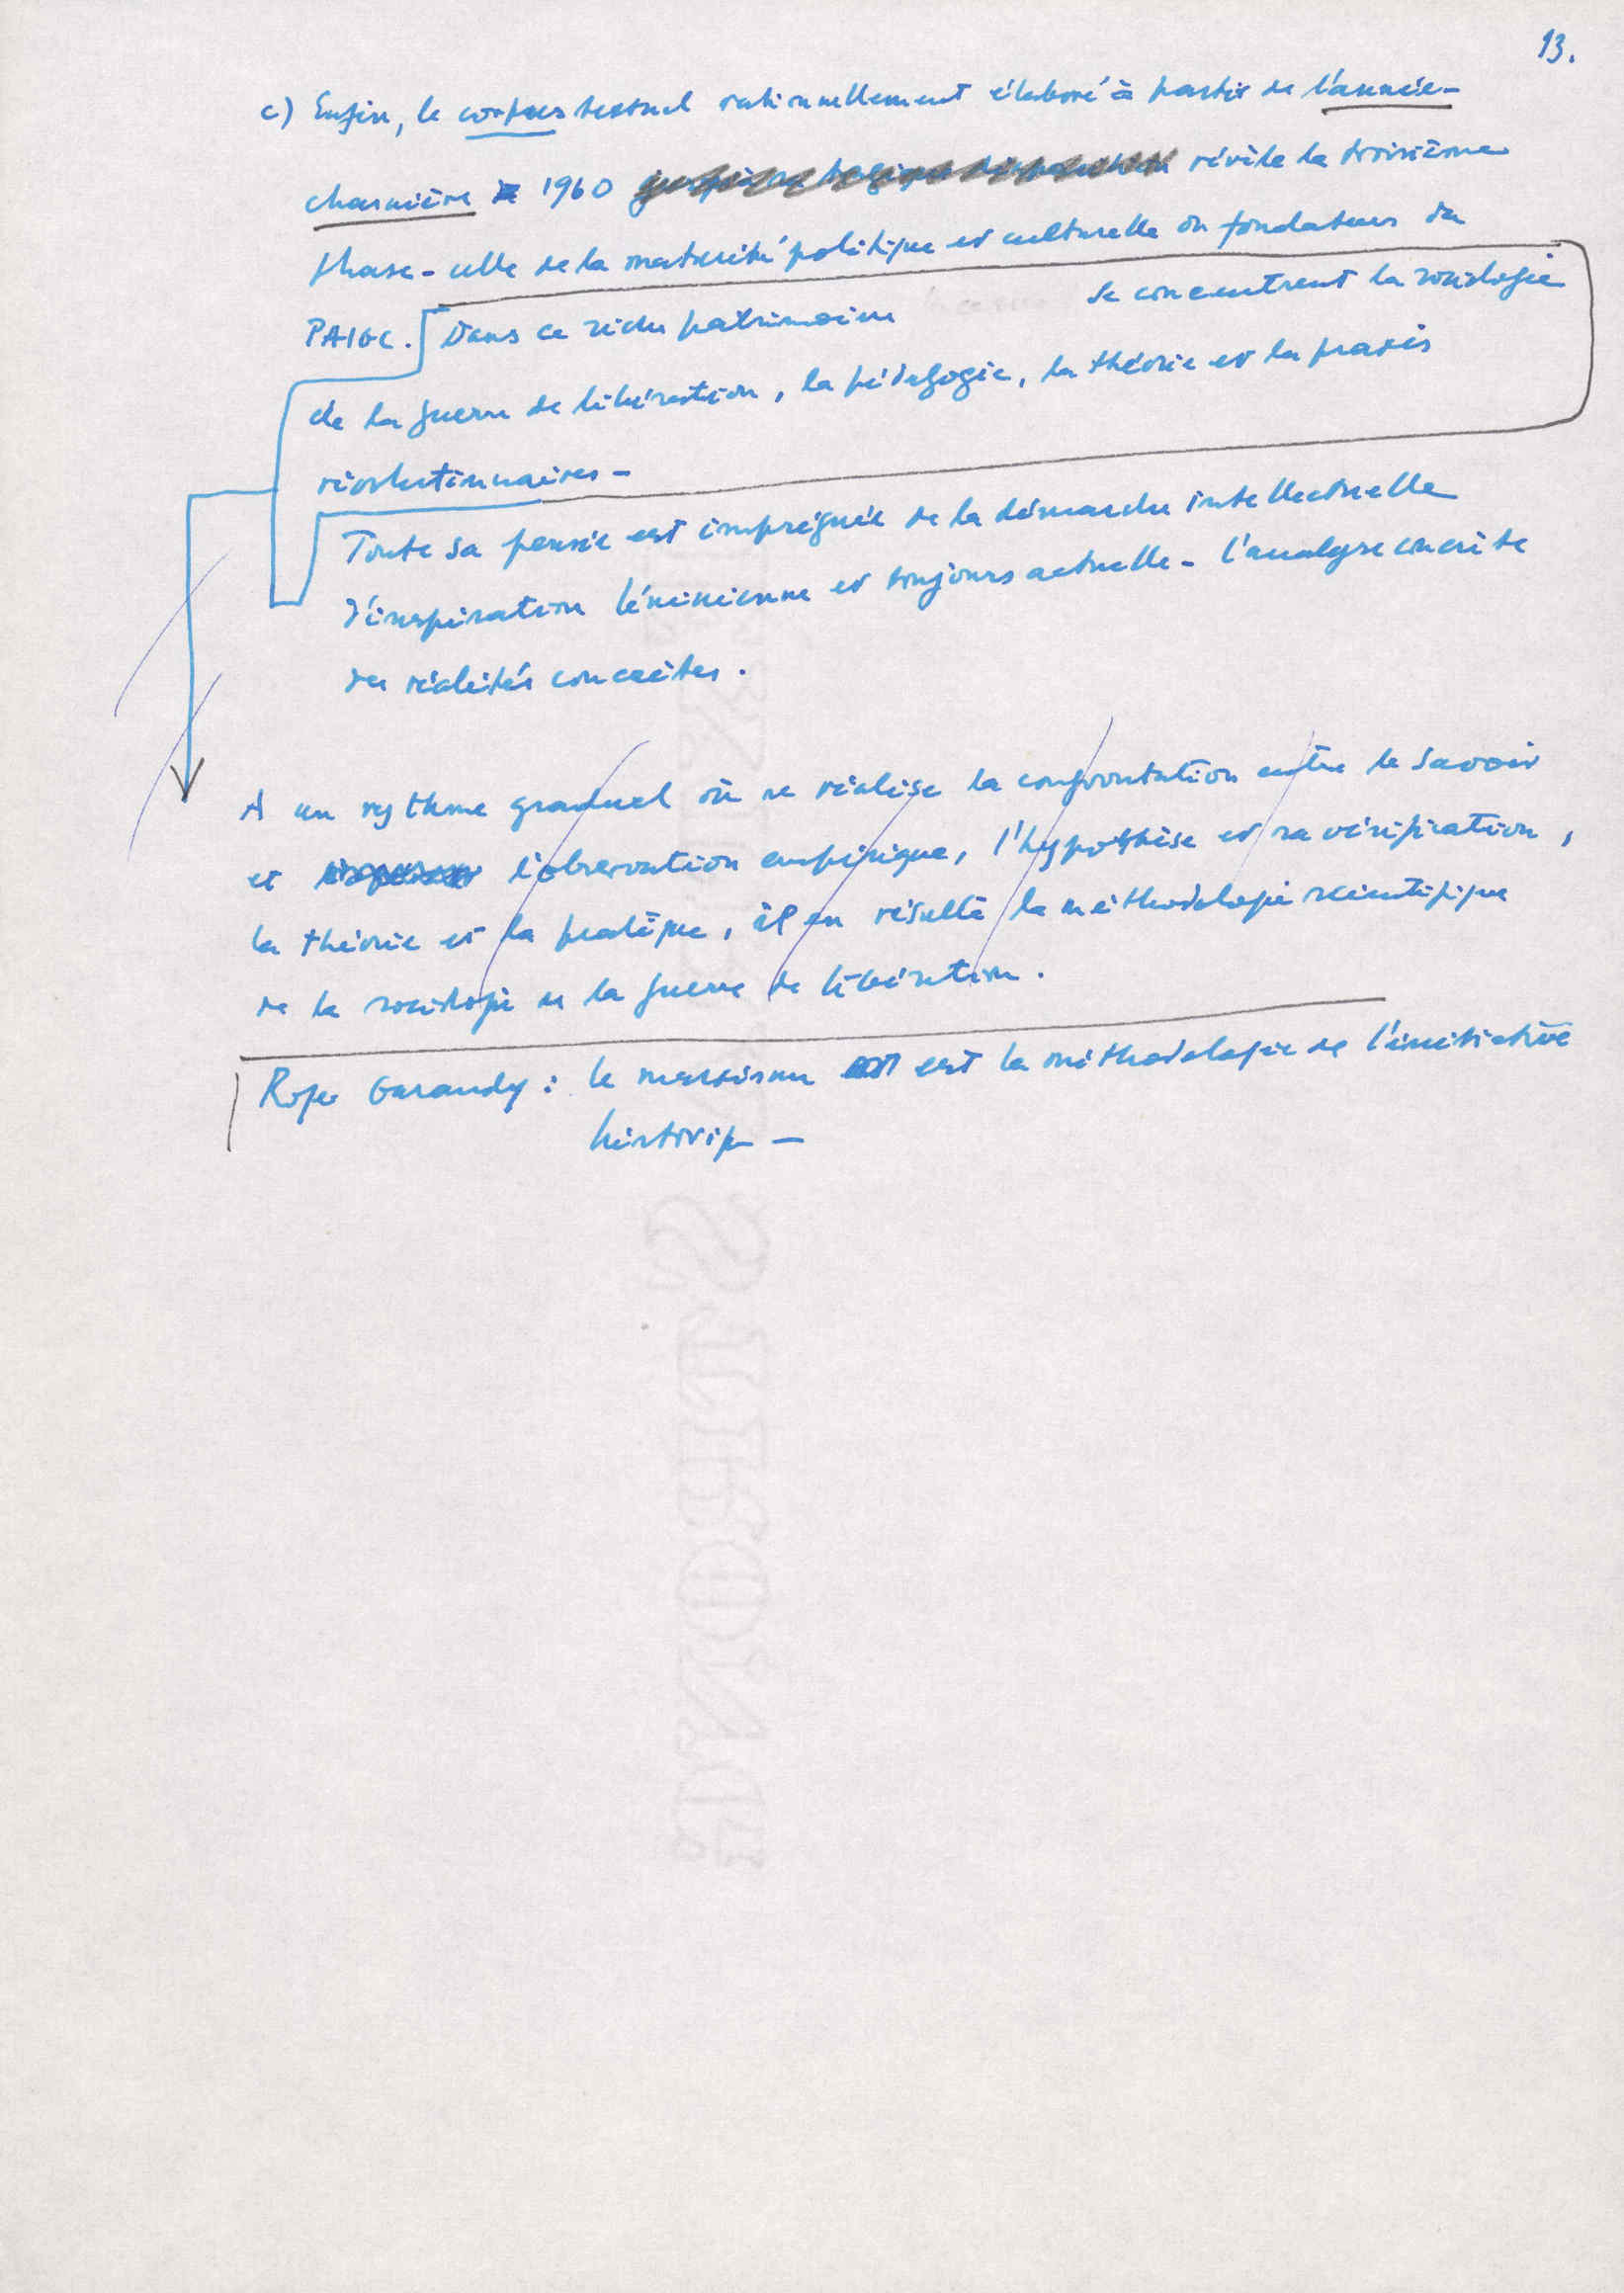 13.
c) Enfin, le corpus textuel rationnellement élaboré à partir de l'année-
charnière 1960 révèle la troisième
phase - celle de la maturité politique et culturelle du fondateur du
PAIGC. Dans ce riche patrimoine se concentrent la sociologie
de la guerre de libération, la pédagogie, la théorie et la praxis
révolutionnaires -
Toute sa pensée est imprégnée de la démarche intellectuelle
d'inspiration léninienne et toujours actuelle - l'analyse concrète
des réalités concrètes.
A un rythme graduel où se réalise la confrontation entre le savoir
et l'observation empirique, l'hypothèse et sa vérification,
la théorie et la pratique, il en résulte la méthodologie scientifique
de la sociologie de la guerre de libération.
Roger Garaudy : le marxisme est la méthodologie de l'initiative
historique -